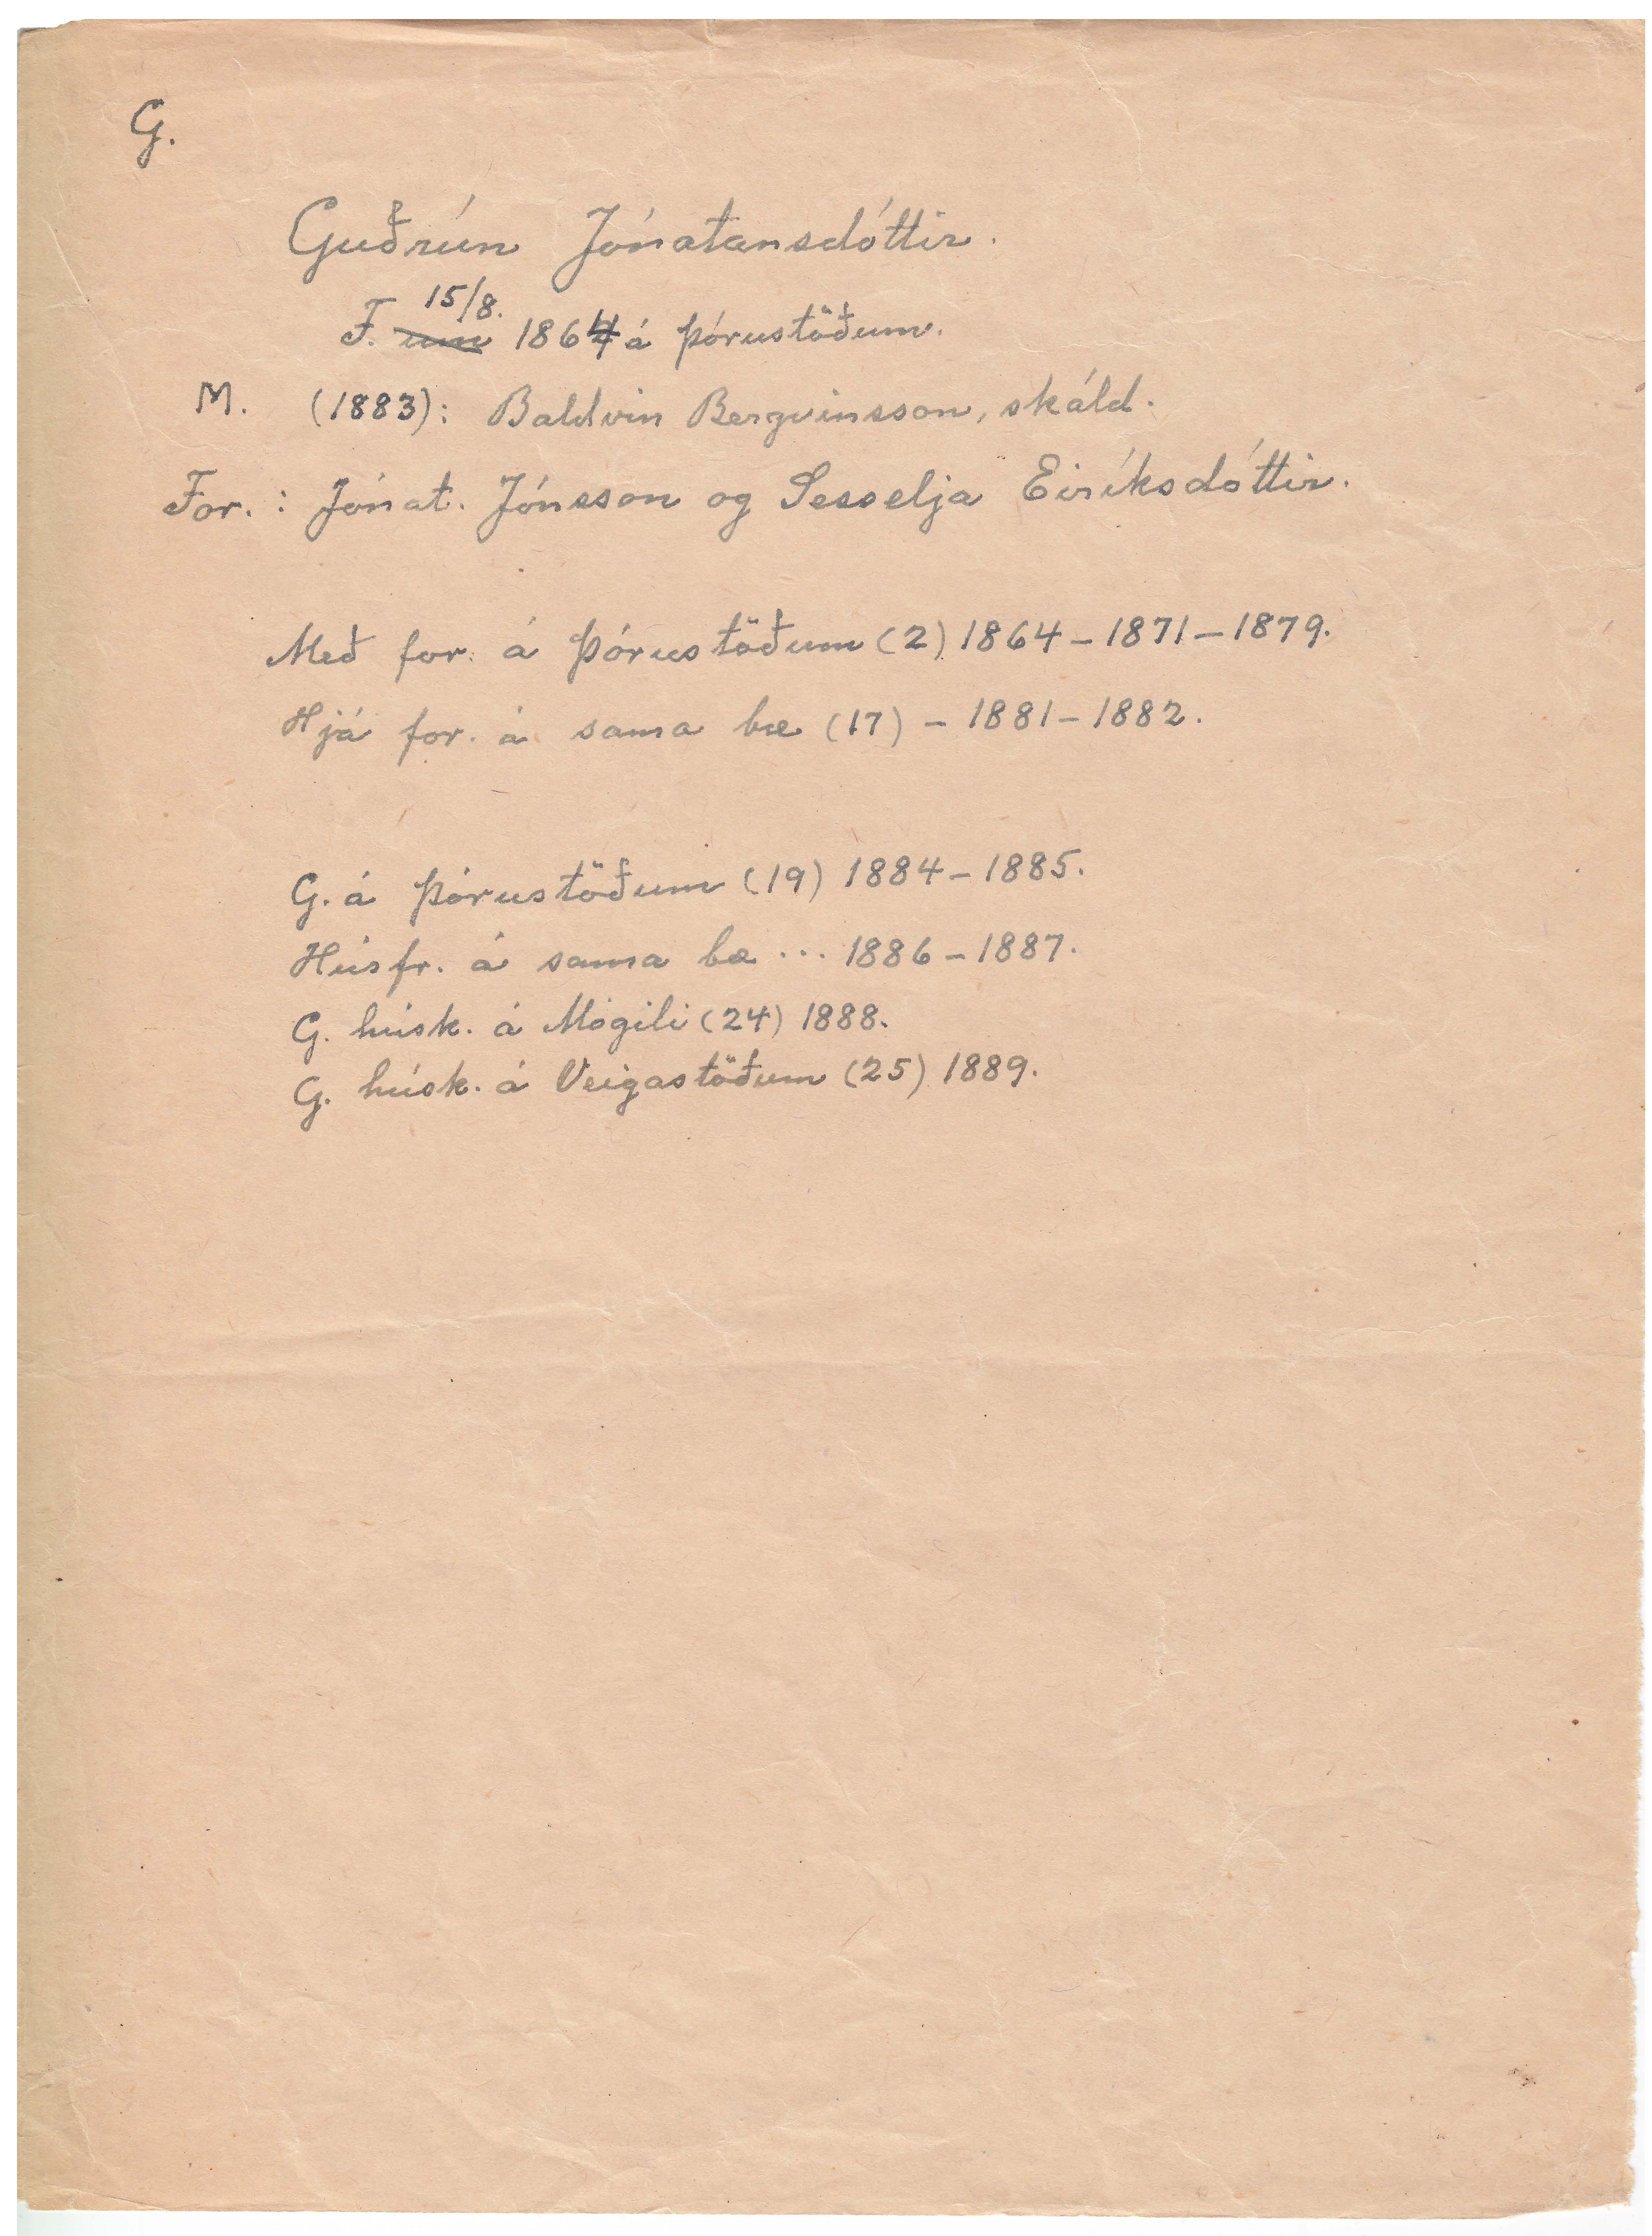 G.
Guðrún Jónatansdóttir.
15/8.
F. um 1864 á Þórustöðum.
M. (1883): Baldvin Bergvinsson, skáld.
For.: Jónat. Jónsson og Sesselja Eiríksdóttir.
Með for. á Þórustöðum (2) 1864 - 1871 - 1879.
Hjá for. á sama bæ (17) - 1881 - 1882.
G. á Þórustöðum (19) 1884 - 1885.
Húsfr. á sama bæ ... 1886 - 1887.
G. húsk. á Mógili (24) 1888.
G. húsk. á Veigastöðum (25) 1889.